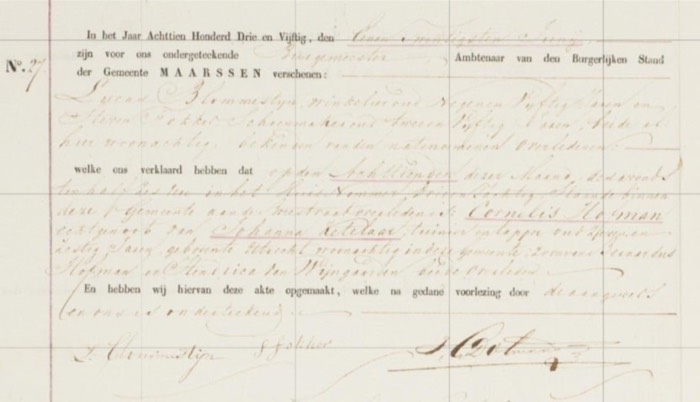 In het Jaar Achttien Honderd Drie en Vijftig, den Een en Twintigsten Juny
zijn voor ons ondergeteekende Burgemeester Ambtenaar van den Burgerlijken Stand
No. 27
der Gemeente MAARSSEN verschenen:
Blommestijn, winkelier oud Negen en Vijftig Jaren en
Steven Fokker Schoenmaker oud twee en Vijftig Jaren, beide al
hier woonachtig, bekenden van den natenoemenen Overledene
welke ons verklaard hebben dat op den Achttienden dezer Maand, des avonds
ten half zes ure in het Huis Nummer drie en Tachtig, Staande binnen
deze Gemeente aan de overleden is Cornelis Hofman
echtgenoot van Johanna tuinier oud
Zestig Jaren geboren te Utrecht woonachtig in deze Gemeente, Zoon van
Hofman en Hendrica van Wijngaarden beide overleden
En hebben wij hiervan deze akte opgemaakt, welke na gedane voorlezing door de
en ons is onderteekend
Blommestijn S Fokker